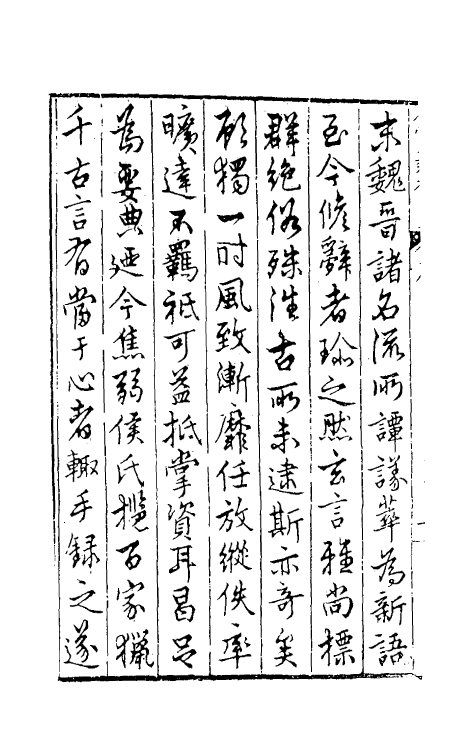 末魏晉諸名流所譚議萃為新語
至今脩辭者珍之然玄言雅尚標
群絕俗殊淮古所未逮斯亦奇矣
顧獨一時風致漸靡任放縱佚率
曠達不羈祗可益抵掌資耳曷足
為要典廼今焦弱侯氏攬百家獵
千古言有當于心者輒手錄之遂